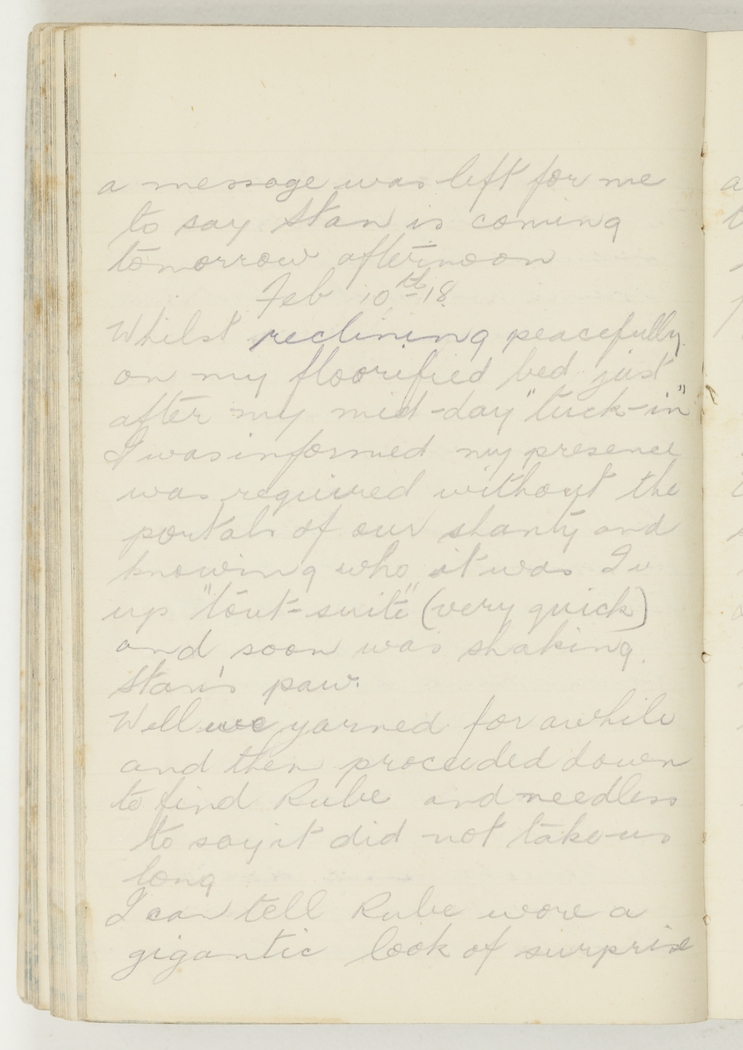 a message was left for me
to say Stan is coming
tomorrow afternoon
Feb 10th-18.
Whilst reclining peacefully
on my floorified bed just
after my mid-day "tuck-in"
I was informed my presence
was required without the
portals of our shanty and
knowing who it was I
up "tout-suite" (very quick)
and soon was shaking
Stan's paw.
Well we yarned for awhile
and then proceeded down
to find Rube and needless
to say it did not take us
long
I can tell Rube wore a
gigantic look of surprise